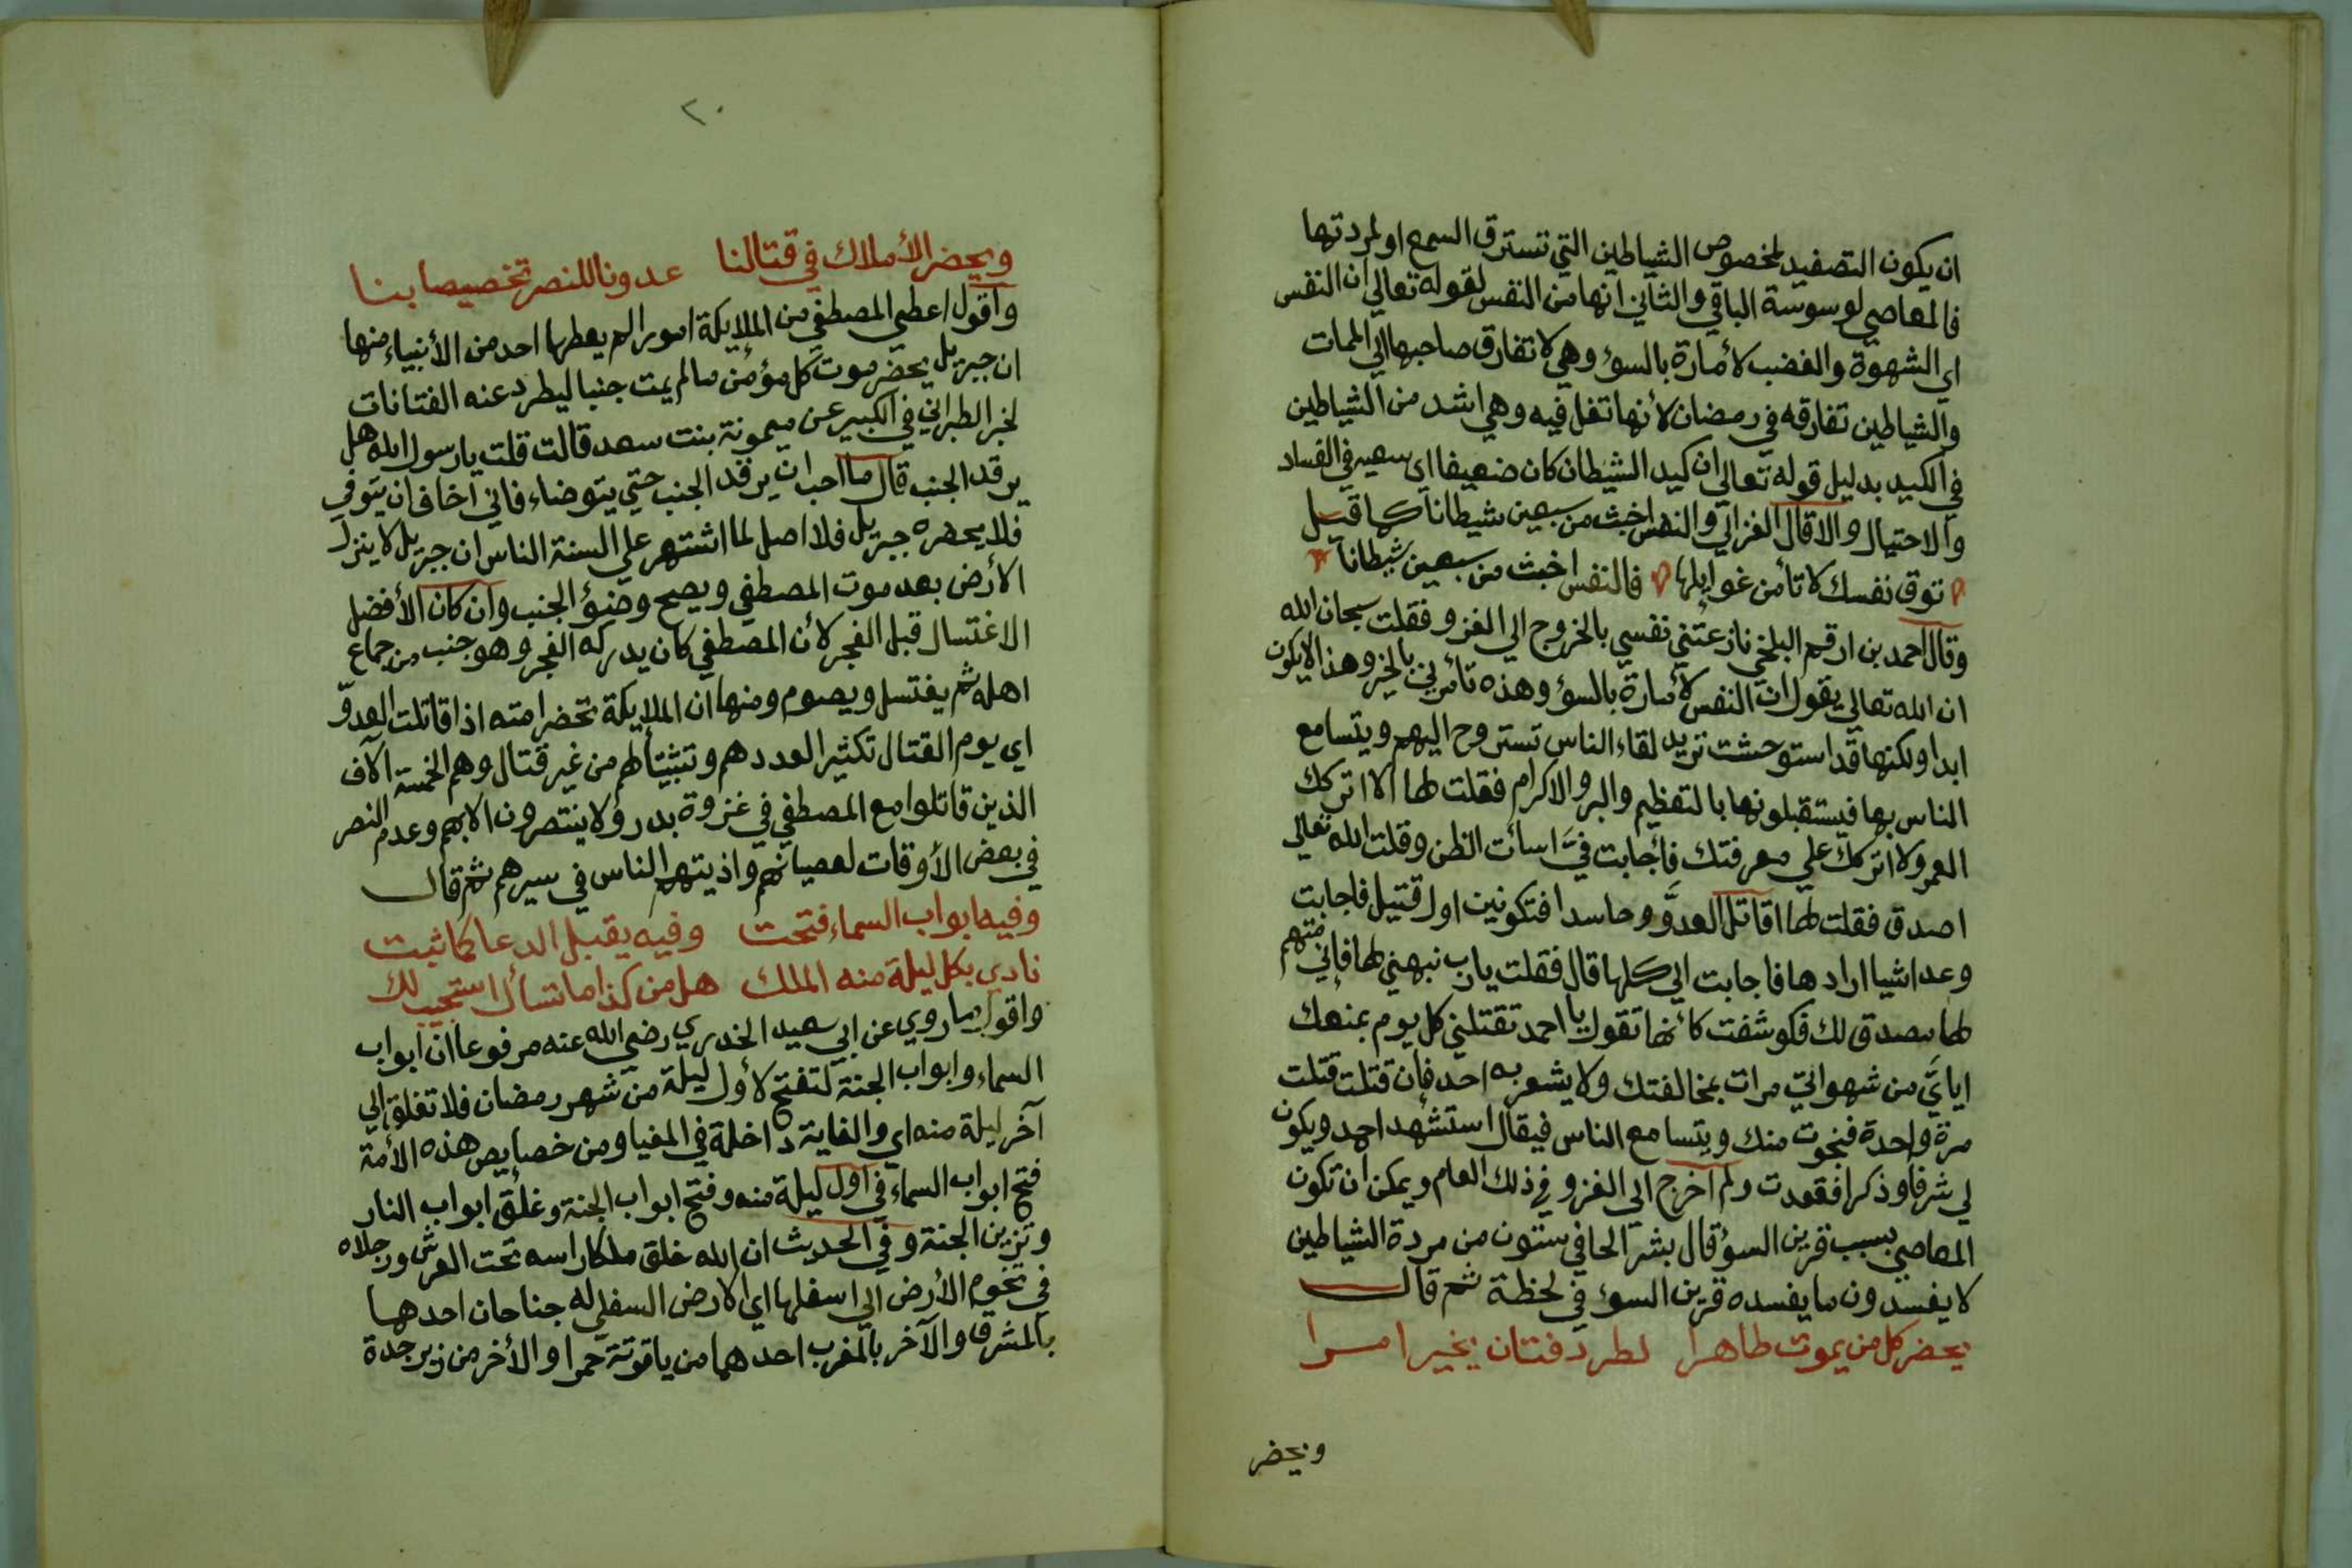 ان يكون التصفيد لخصوص الشياطين التي تسترق السمع او لمردتها
فالمعاصي لوسوسة الباقي والثاني انها من النفس لقوله تعالي ان النفس
اي الشهوة والغضب لأمارة بالسوء وهي لا تفارق صاحبها الي الممات
والشياطين تفارقه في رمضان لأنها تغل فيه وهي اشد من الشياطين
في الكيد بدليل قوله تعالي ان كيد الشيطان كان ضعيفا اي سعيه في الفساد
والاحتيال والا قال الغزالي والنفس اخبث من سبعين شيطانا كما قيل
توق نفسك لا تأمن غوايلها فالنفس اخبث من سبعين شيطانا
وقال احمد بن ارقم البلخي نازعتني نفسي بالخروج الي الغزو فقلت سبحان الله
ان الله تعالي يقول ان النفس لأمارة بالسوء وهذه تأمرني بالخير وهذا لا يكون
ابدا ولكنها قد استوحشت تريد لقاء الناس تستروح اليهم ويتسامع
الناس بها فيستقبلونها بالتعظيم والبر والاكرام فقلت لها الا اتركك
العمر ولا اتركك علي معرفتك فأجابت فيَّ اسأت الظن وقلت الله تعالي
اصدق فقلت لها اقاتل العدوَّ وحاسدا فتكونين اول قتيل فاجابت
وعد اشيا ارادها فاجابت الي كلها قال فقلت يا رب نبهني لها فإني متهم
لها مصدق لك فكوشفت كأنها تقول يا احمد تقتلني كل يوم بمنعك
اياي من شهواتي مرات بمخالفتك ولا يشعر به احد فإن قتلت قتلت
مرة واحدة فنجوت منك ويتسامع الناس فيقال استشهد احمد ويكون
لي شرفا وذكرا فقعدت ولم اخرج الي الغزو في ذلك العام ويمكن ان تكون
المعاصي بسبب قرين السوء قال بشر الحافي ستون من مردة الشياطين
لا يفسدون ما يفسده قرين السوء في لحظة ثم قال
يحضر كل من يموت طاهرا لطرد فتان بخير امرا
ويحضر
٢٠
ويحضر الأملاك في قتالنا عدونا للنصر تخصيصا بنا
واقول اعطي المصطفي من الملايكة امورا لم يعطها احد من الأنبياء منها
ان جبريل يحضر موت كل مؤمن ما لم يمت جنبا ليطرد عنه الفتانات
لخبر الطبراني في الكبير عن ميمونة بنت سعد قالت قلت يا رسول الله هل
يرقد الجنب قال ما احب ان يرقد الجنب حتي يتوضاء فاني اخاف ان يتوفي
فلا يحضره جبريل فلا اصل لما اشتهر علي السنة الناس ان جبريل لا ينزل
الأرض بعد موت المصطفي ويصح وضوء الجنب وان كان الأفضل
الاغتسال قبل الفجر لأن المصطفي كان يدركه الفجر وهو جنب من جماع
اهله ثم يغتسل ويصوم ومنها ان الملايكة تحضر امته اذا قاتلت العدوّ
اي يوم القتال تكثيرا لعددهم وتثبيتا لهم من غير قتال وهم الخمسة آلاف
الذين قاتلوا مع المصطفي في غزوة بدر ولا ينتصرون الا بهم وعدم النصر
في بعض الأوقات لعصيانهم واذيتهم الناس في سيرهم ثم قال
وفيه ابواب السماء فتحت وفيه يقبل الدعا كما ثبت
نادي بكل ليلة منه الملك هل من كذا ما تسأل استجيب لك
واقول ما روي عن ابي سعيد الخدري رضي الله عنه مرفوعا ان ابواب
السماء وابواب الجنة لتفتح لأول ليلة من شهر رمضان فلا تغلق الي
آخر ليلة منه اي والغاية داخلة في المغيا ومن خصايص هذه الأمة
فتح ابواب السماء في اول ليلة منه وفتح ابواب الجنة وغلق ابواب النار
وتزين الجنة وفي الحديث ان الله خلق ملكا راسه تحت العرش ورجلاه
في تخوم الأرض الي اسفلها اي الارض السفلي له جناحان احدهما
بالمشرق والآخر بالمغرب احدهما من ياقوتة حمرا والأخر من زبرجدة